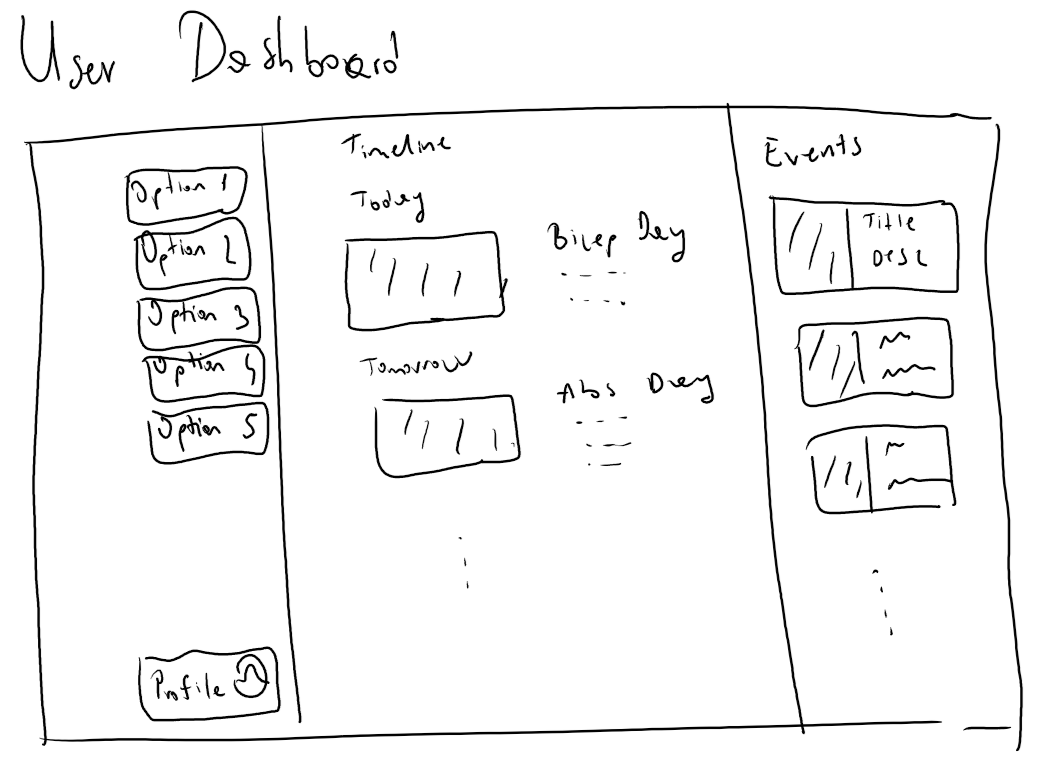 User Dashboard
Option 1
Option 2
Option 3
Option 4
Option 5
Profile
Timeline
Today
Bicep Day
Tomorrow
Abs Day
Events
Title
Desc